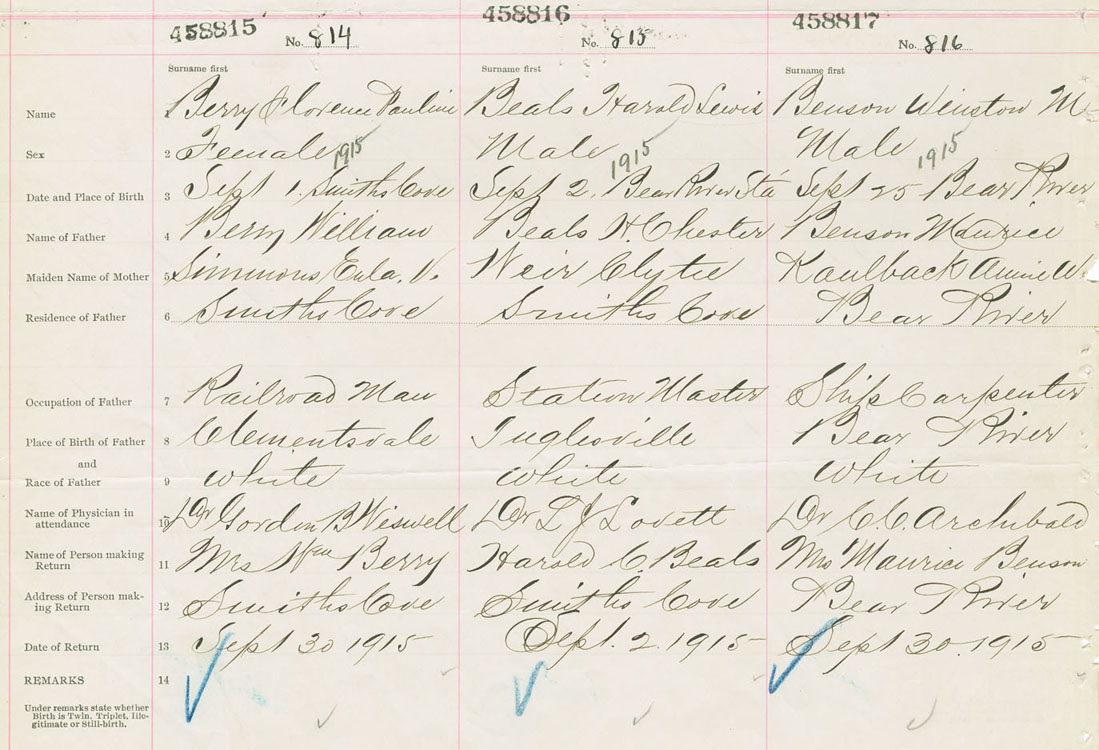 458815 No. 814 458816 No. 815 458817 No. 816
Surname first Surname first Surname first
Name 1 Berry Florence Pauline Beals Harold Lewis Benson Winston M
Sex 2 Female 1915 Male 1915 Male 1915
Date and Place of Birth 3 Sept 1. Smiths Cove Sept 2. Bear River Sta Sept 25 Bear River
Name of Father 4 Berry William Beals H. Chester Benson Maurice
Maiden Name of Mother 5 Simmons Eula. V. Weir Clytie Kaulback Annie W.
Residence of Father 6 Smiths Cove Smiths Cove Bear River
Occupation of Father 7 Railroad Man Station Master Ship Carpenter
Place of Birth of Father 8 Clementsvale Inglesville Bear River
and
Race of Father 9 White White White
Name of Physician in
attendance 10 Dr Gordon B Wiswell Dr L J Lovett Dr C.C. Archibald
Name of Person making
Return 11 Mrs Wm Berry Harold C Beals Mrs Maurice Benson
Address of Person mak-
ing Return 12 Smiths Cove Smiths Cove Bear River
Date of Return 13 Sept 30 1915 Sept. 2. 1915 Sept 30. 1915
REMARKS 14
Under remarks state whether
Birth is Twin. Triplet, Ille-
gitimate or Still-birth.